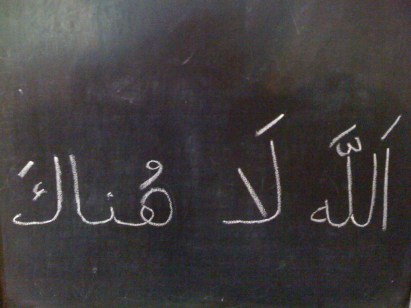 اَللَّه لَا هُناكَ